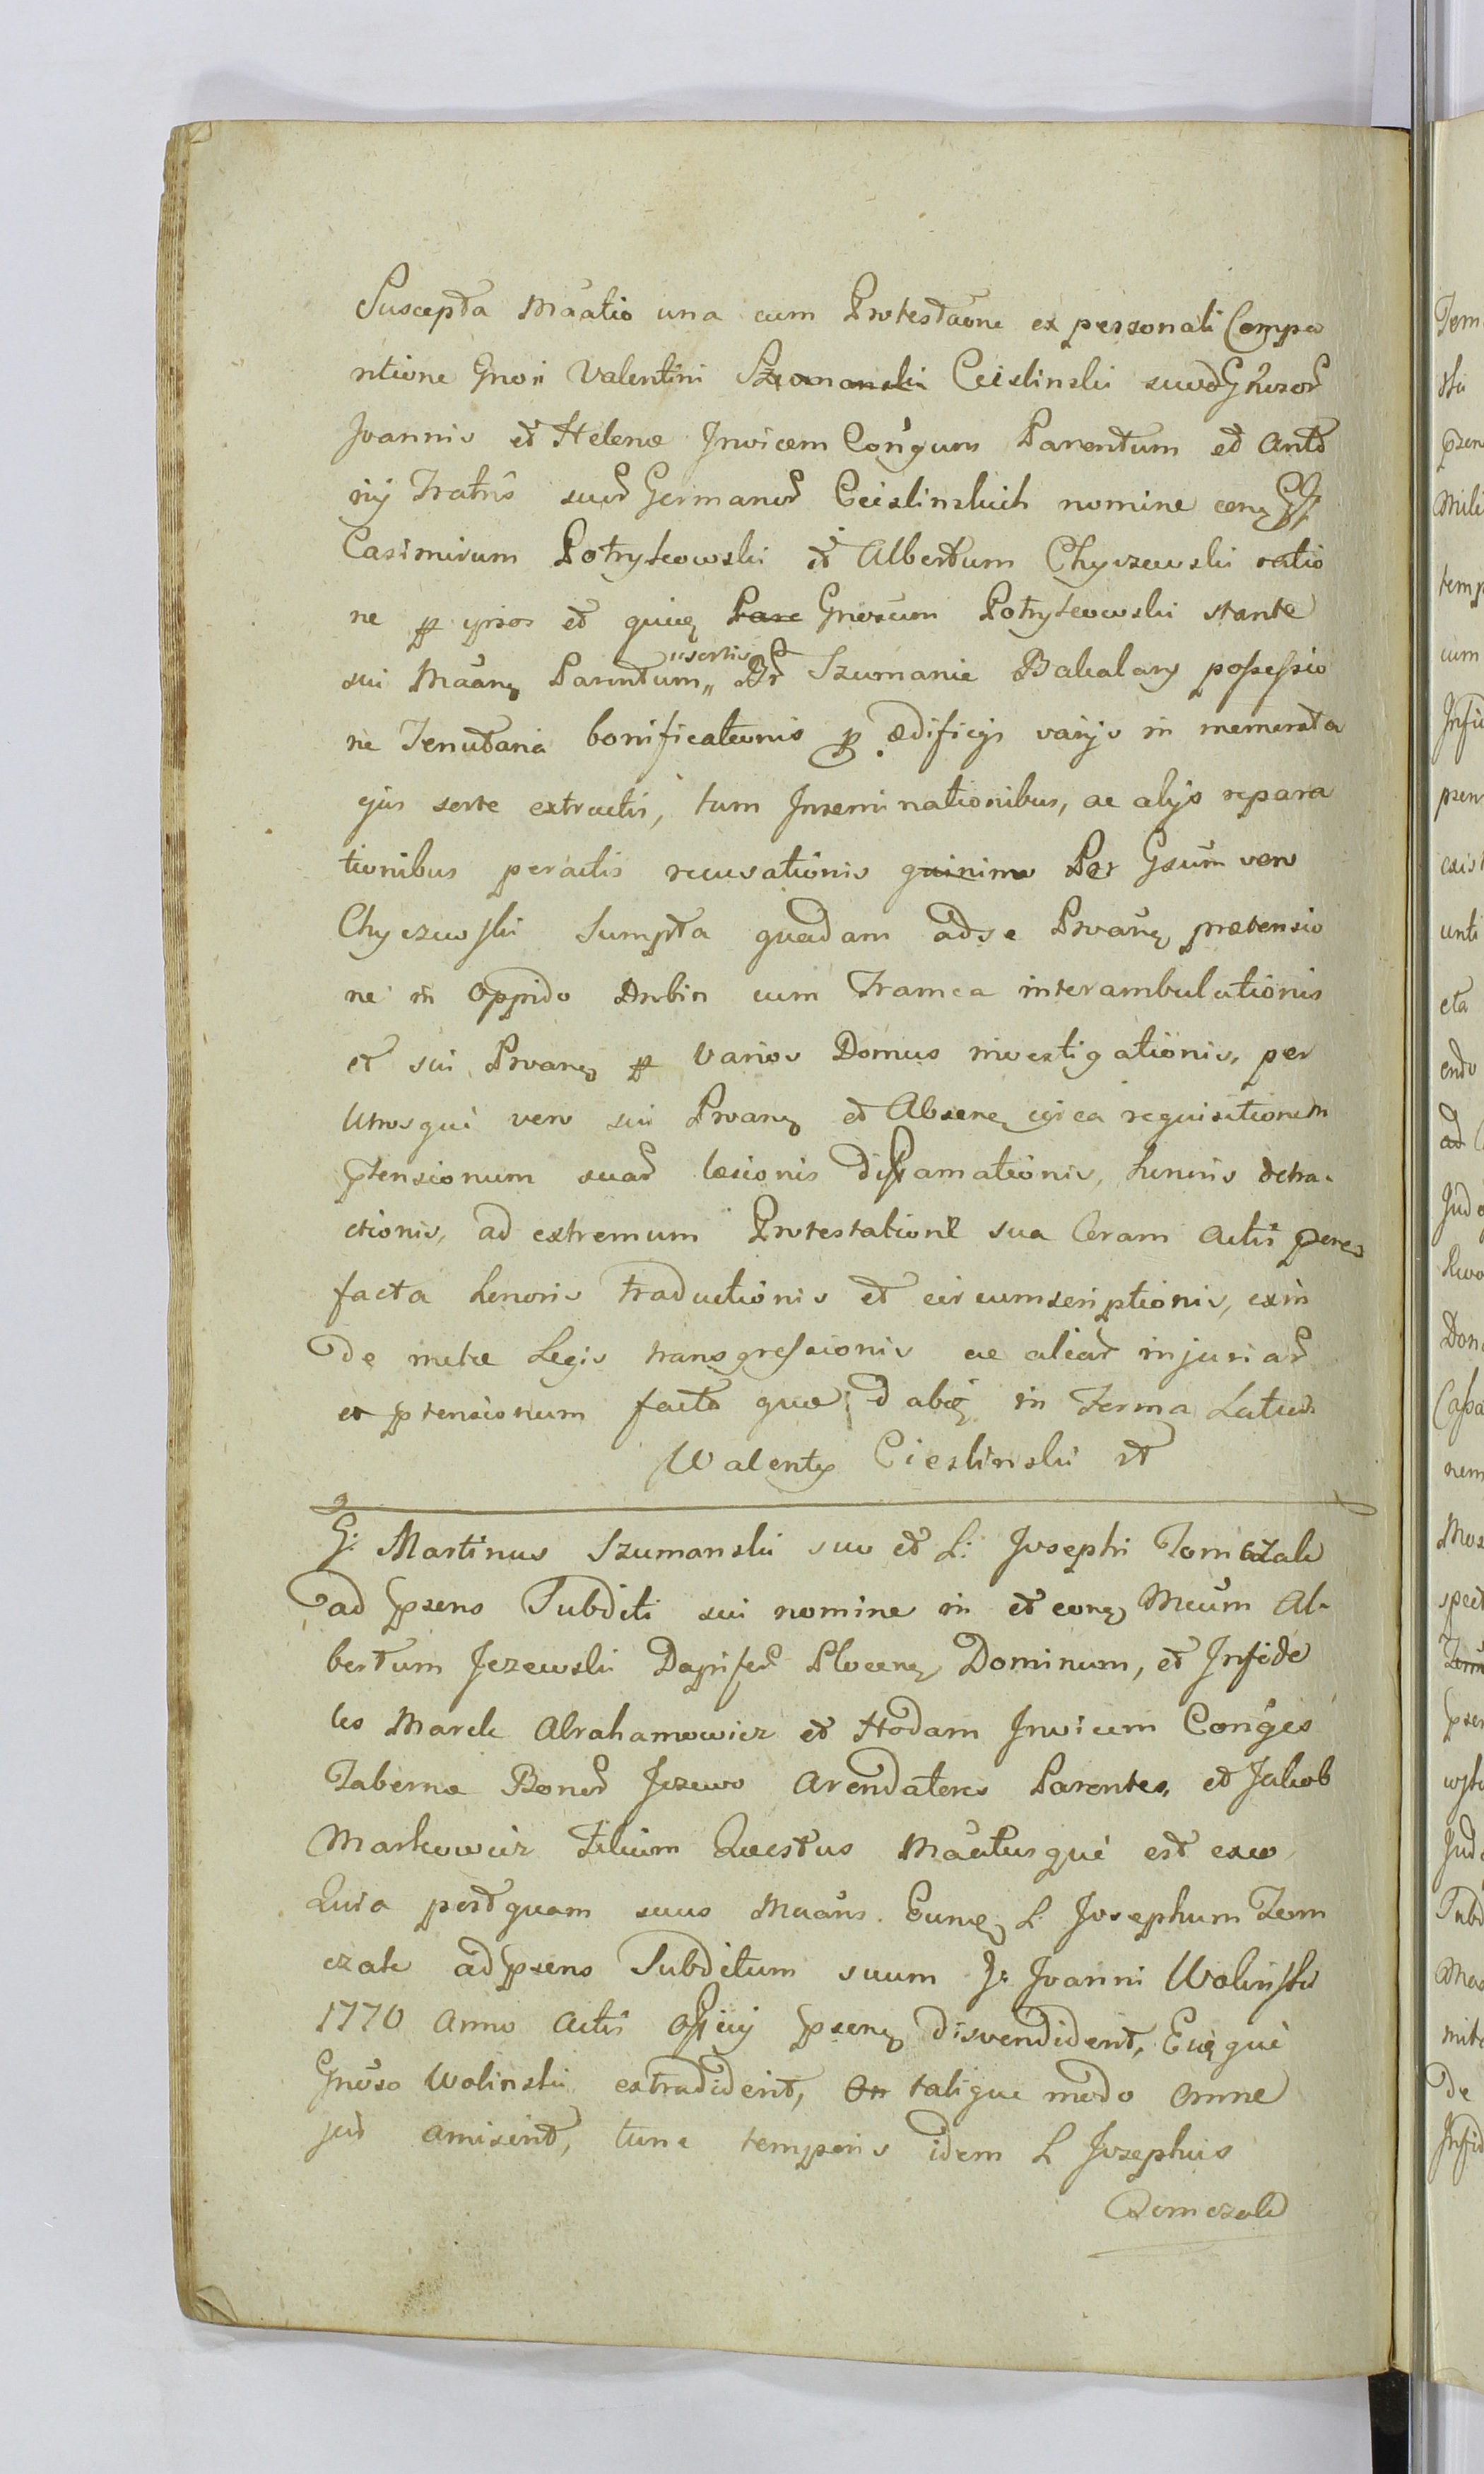 Suscepta Maatio una cum Protestaone ex personali Compa
ritione Gnosi Valentini Szumanski Cieslinski suo Gnosor
Joannis et Helenæ Invicem Congum Parentum et Anto
nij Fratris suor Germanor Cieslinskich nomine conq GG
Casimirum Potrykowski et Albertum Chyczewski ratio
ne p ipsos et quiuq Parc Gnosum Potrykowski stante
sui Maanq Parentum,, Br Szumanie Bakalary possessio
usortis
ne Tenutaria bonificationis p ædificijs varijs in memorata
ejus sorte extructis, tum Inseminationibus, ac alijs repara
tionibus peractis recusationis quinimo Per Gsum vero
Chyczewski Sumpta quadam adse Proanq prætensio
ne in Oppido Drobin cum Framea interambulationis
et sui Proanq p Varios Domus investigationis, per
Utrosque vero sui Proanq et Absenq circa requisitionem
ptensionum suar læsionis diffamationis, honoris detra-
ctionis, ad extremum Protestatione sua Coram Actis psenq
facta honoris traductionis et circumscriptionis, exin
de metæ Legis transgressionis ac aliar injuriar
et ptensionum facta quæ in Forma Latius
Walenty Cieslinski
G: Martinus Szumanski suo et L: Josephi Tomczak
ad psens Subditi sui nomine in et conq Mcum Al-
bertum Jezewski Dapifer Plocenq Dominum, et Infide
les Marek Abrahamowicz et Hodam Invicem Conges
Tabernæ Bonor Jezewo Arendatores Parentes, et Jakob
Markowicz Filium Questus Maatusque est exeo
Quia postquam suus Maans. Eunq L. Josephum Tom
czak adpsens Subditum suum G: Joanni Wolinski
1770 Anno Actis Officij psenq disvendiderit, Euqque
Gnoso Wolinski extradiderit, On talique modo omne
jus amiserit, tunc temporis idem L Josephus
Tomczak
Tem
ski
psen
Mili
temp
cum
Infid
psen
exist
unti
cta
endo
ad
Jud
Don
Capa
nem
Mos
spect
psen
Jud
Subd
Mas
mit
De
Infid